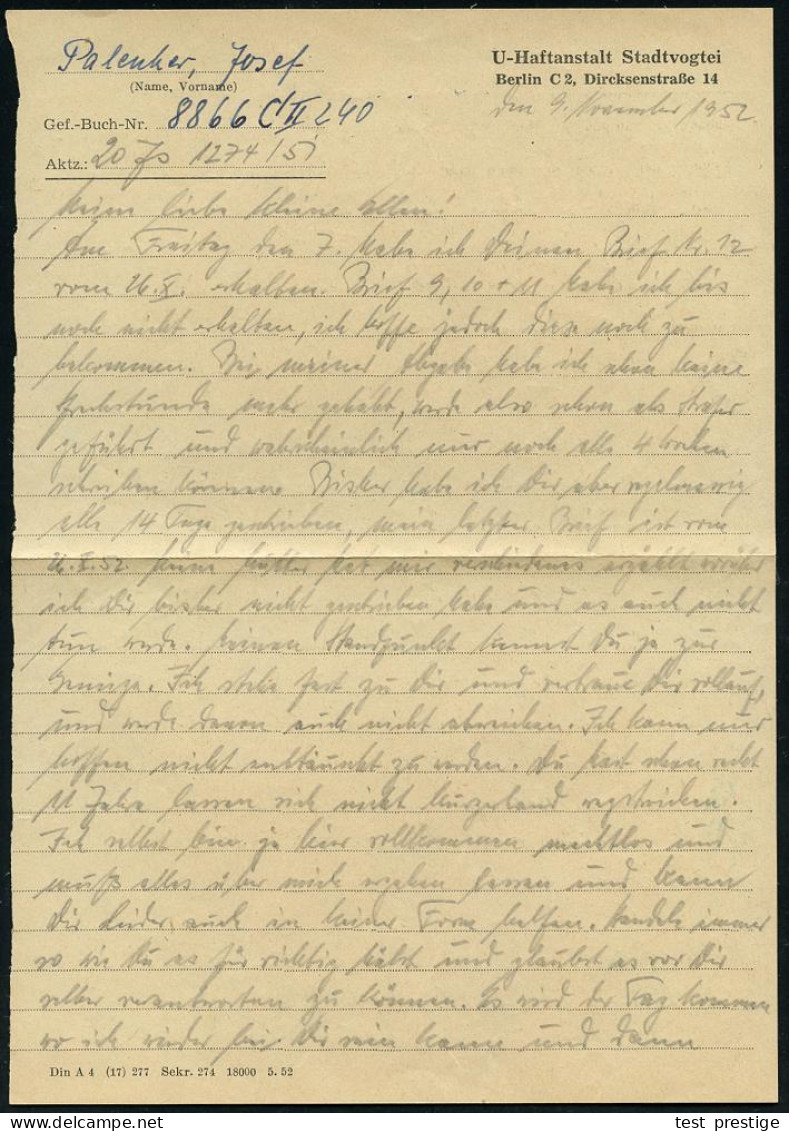 Palenker, Josef
(Name, Vorname)
U-Haftanstalt Stadtvogtei
Berlin C 2, Dircksenstraße 14
Gef.-Buch-Nr. 8866 C II 240
den 9. November 1952.
Aktz.: 20 Js 1274/51
Meine liebe kleine Ellen!
Am Freitag den 7. habe ich Deinen Brief Nr. 12
vom 26.X. erhalten. Brief 9, 10 + 11 habe ich bis
noch nicht erhalten, ich hoffe jedoch diese noch zu
bekommen. Bei meiner habe ich schon keine
Sprechstunde mehr gehabt, werde also schon als Straf
geführt und wahrscheinlich nur noch alle 4 Wochen
schreiben können. Bisher habe ich Dir aber regelmässig
alle 14 Tage geschrieben, mein letzter Brief ist vom
26.X.52. Meine Mutter hat mir verschiedenes erzählt worüber
ich Dir bisher nicht geschrieben habe und es auch nicht
tun werde. Meinen Standpunkt kennst Du ja zur
Genüge. Ich stehe fest zu Dir und vertraue Dir vollauf,
und werde davon auch nicht abweichen. Ich kann nur
hoffen nicht enttäuscht zu werden. Du hast schon recht
11 Jahre lassen sich nicht kurzerhand wegstreichen.
Ich selbst bin ja hier vollkommen machtlos und
muß alles über mich ergehen lassen und kann
Dir leider auch in keiner Form helfen. Handele immer
so wie Du es für richtig hälst und glaubst es vor Dir
selber verantworten zu können. Es wird der Tag kommen
wo ich wieder bei Dir sein kann und dann
Din A 4 (17) 277 Sekr. 274 18000 5. 52
test prestige